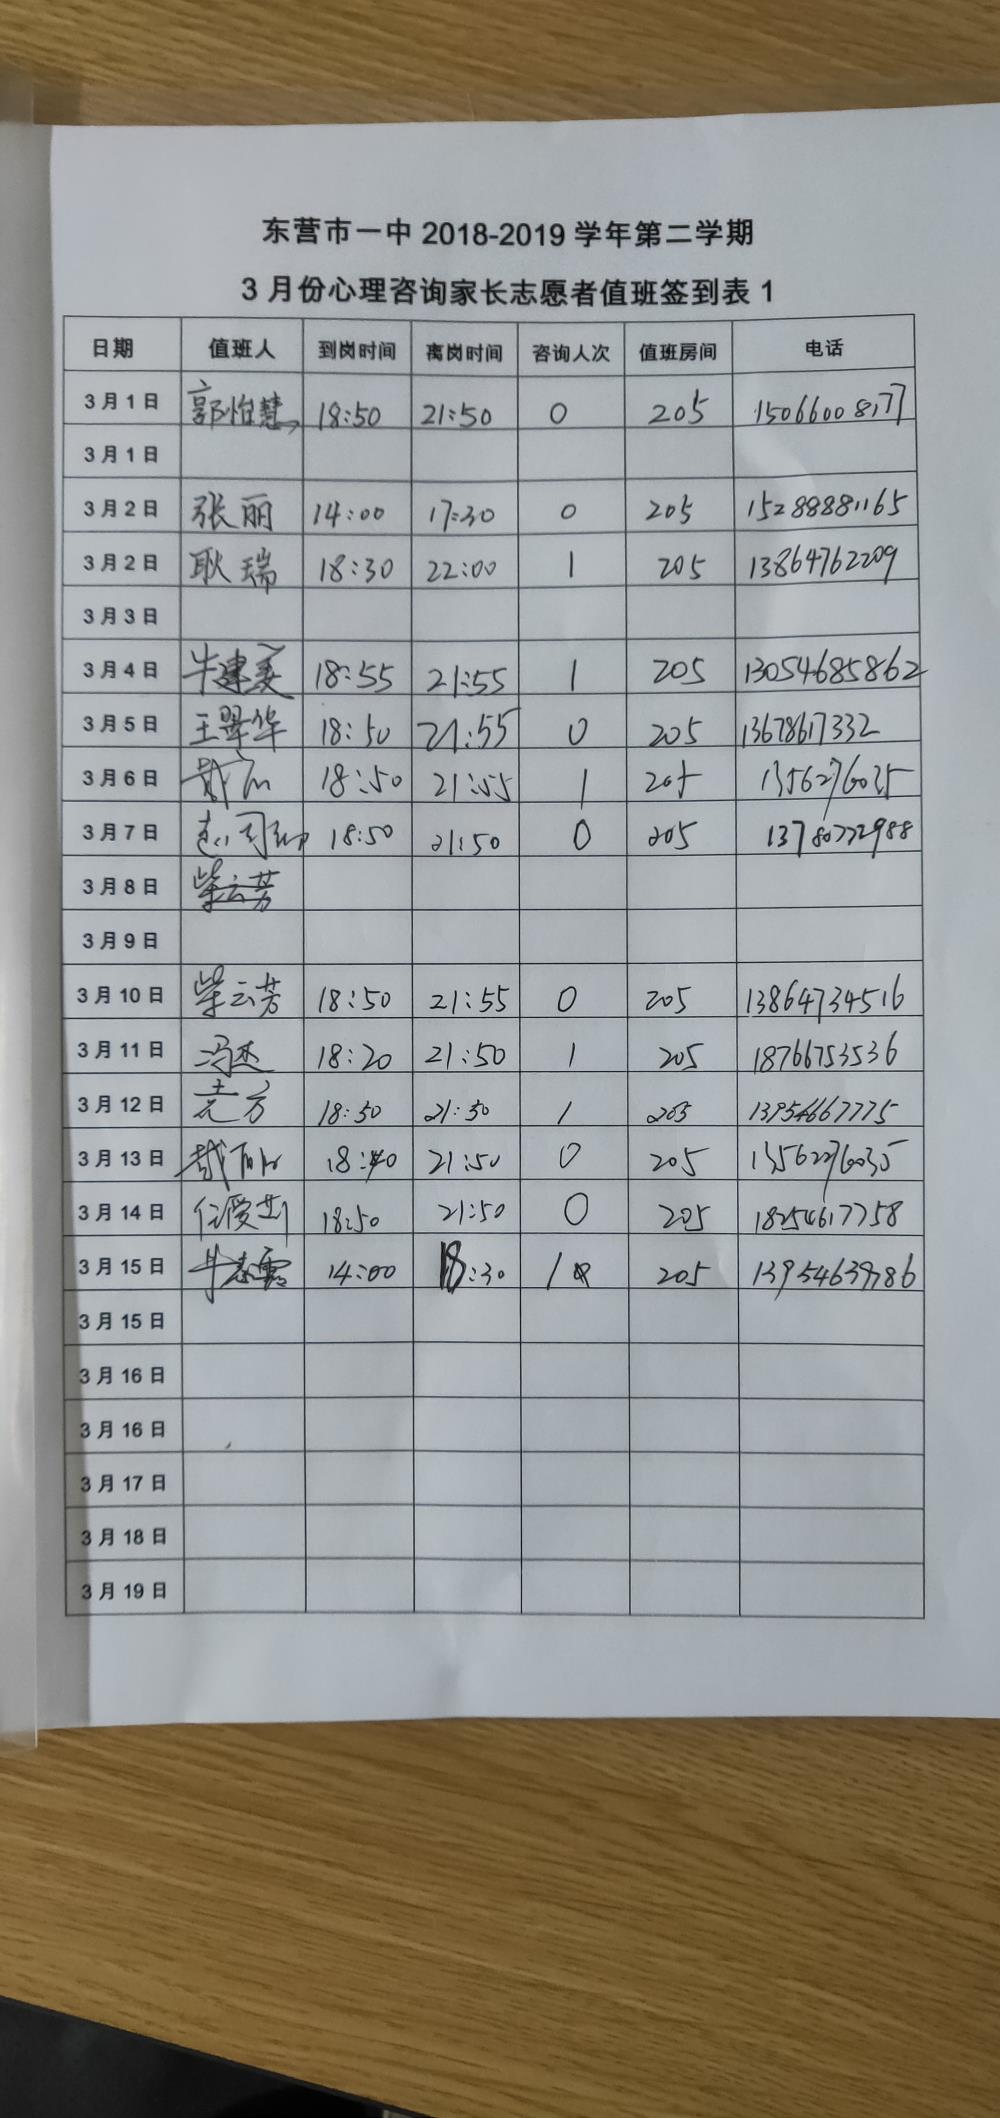 东营市一中 2018-2019 学年第二学期
3 月份心理咨询家长志愿者值班签到表 1
日期 值班人 到岗时间 离岗时间 咨询人次 值班房间 电话
3 月 1 日 郭怡慧 18:50 21:50 0 205 15066008177
3 月 1 日
3 月 2 日 张丽 14:00 17:30 0 205 15288881165
3 月 2 日 耿瑞 18:30 22:00 1 205 13864762209
3 月 3 日
3 月 4 日 牛建美 18:55 21:55 1 205 13054685862
3 月 5 日 王翠华 18:50 21:55 0 205 13678617332
3 月 6 日 18:50 21:55 1 205 13562276035
3 月 7 日 18:50 21:50 0 205 13780772988
3 月 8 日 柴云芳
3 月 9 日
3 月 10 日 柴云芳 18:50 21:55 0 205 13864734516
3 月 11 日 冯杰 18:20 21:50 1 205 18766753536
3 月 12 日 18:50 21:50 1 205 13954667775
3 月 13 日 18:40 21:50 0 205 13562276035
3 月 14 日 18:50 21:50 0 205 18254617758
3 月 15 日 14:00 18:30 1 205 13954639786
3 月 15 日
3 月 16 日
3 月 16 日
3 月 17 日
3 月 18 日
3 月 19 日